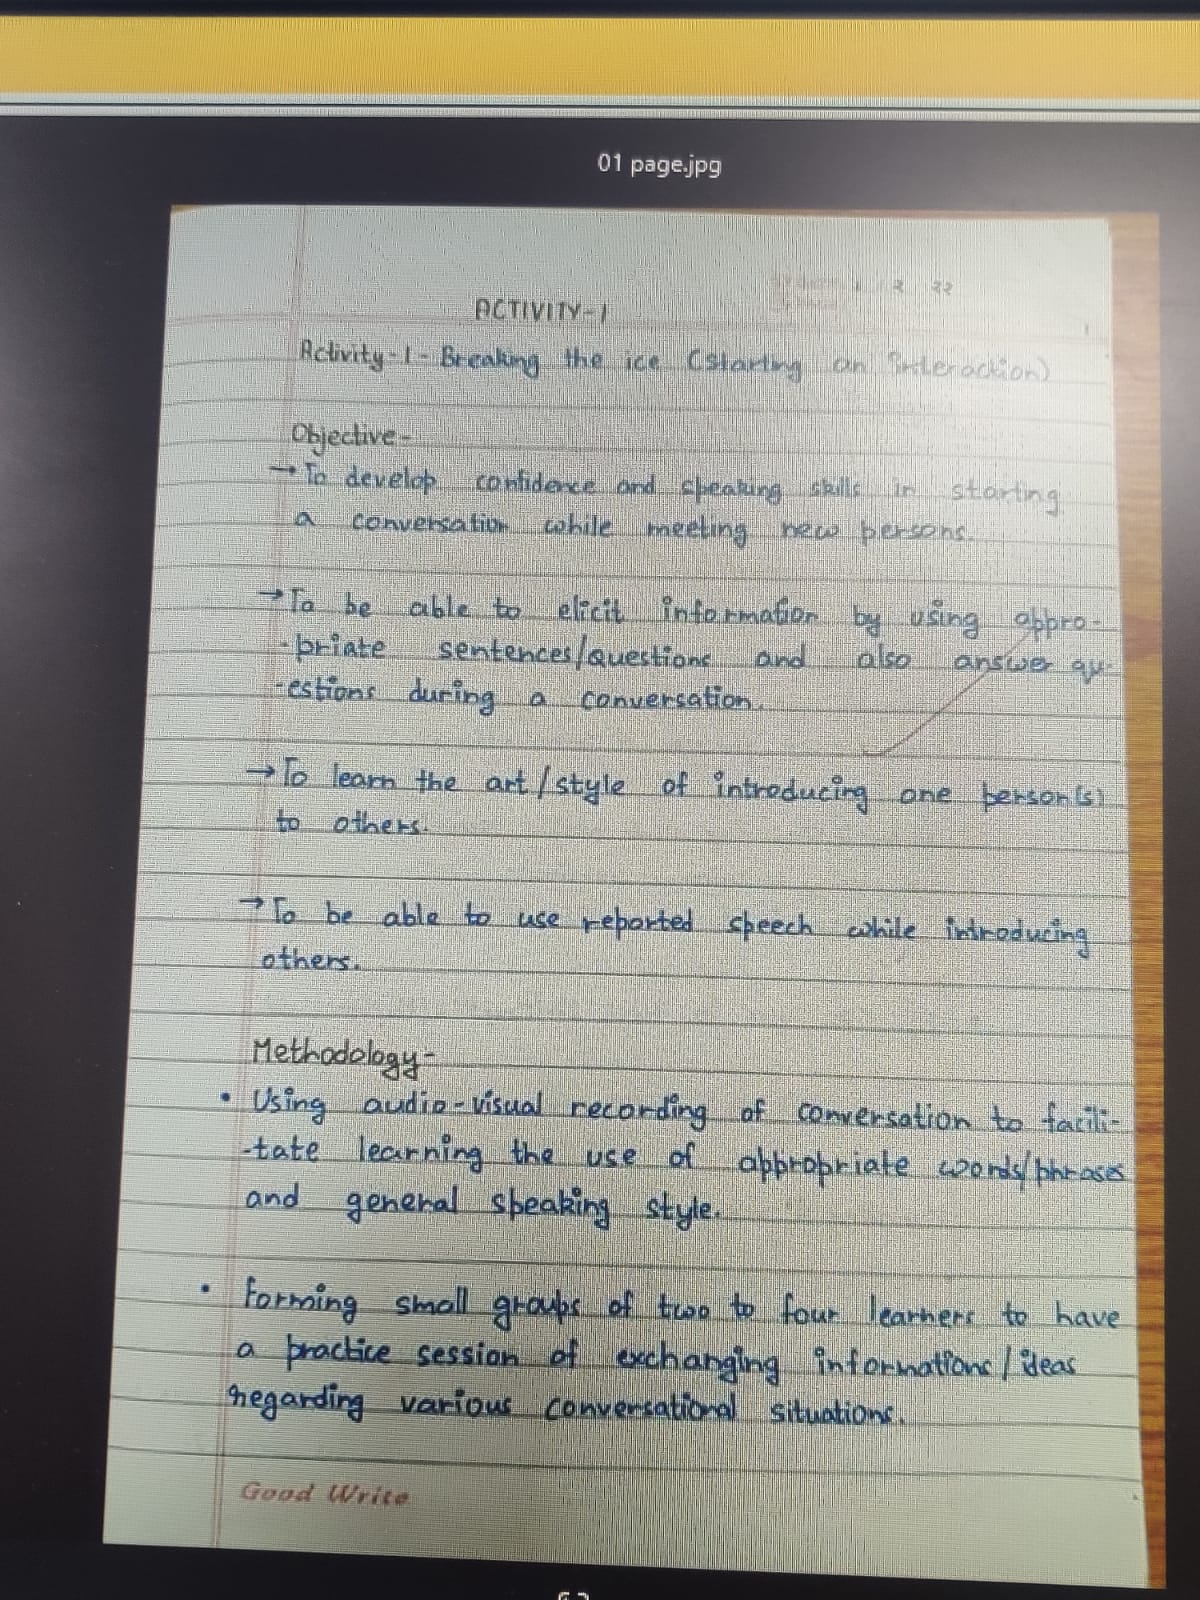 01 page.jpg
ACTIVITY-1
Activity-1- Breaking the ice (Starting an Interaction)
Objective-
→ To develop confidence and speaking skills in starting
a conversation while meeting new persons.
→ To be able to elicit information by using appro-
-priate sentences/questions and also answer qu-
-estions during a conversation.
→ To learn the art/style of introducing one person(s)
to others.
→ To be able to use reported speech while introducing
others.
Methodology-
• Using audio-visual recording of conversation to facili-
-tate learning the use of appropriate words/phrases
and general speaking style.
• Forming small groups of two to four learners to have
a practice session of exchanging informations/ideas
regarding various conversational situations.
Good Write